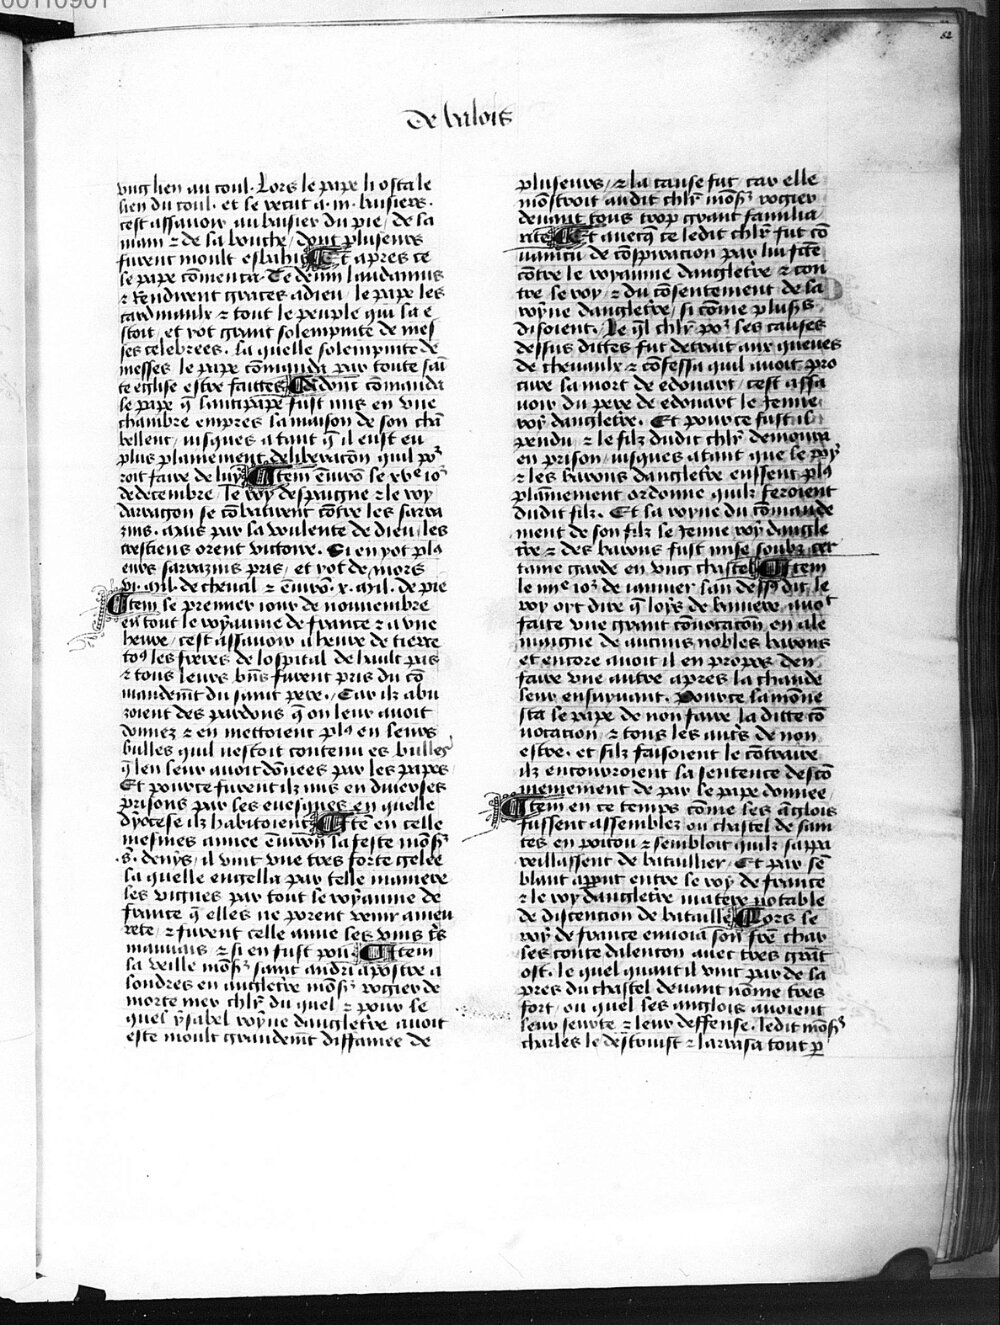 00110901
62
De valois
vng lien au coul. Lors le pape li osta le
lien du coul. et se recut a .iii. baisiers.
cest assauoir au baisier du pie / de la
main ⁊ de la bouche / dont pluseurs
furent moult esbahis Et apres ce
le pape cōmenca. Te deum laudamus
⁊ rendirent graces adieu / le pape les
cardinaulx ⁊ tout le peuple qui la e
stoit / et rot grant solempnite de mes
ses celebrees. la quelle solempnite de
messes le pape cōmanda par toute sāi
te eglise estre faittes Et donc cōmanda
le pape q̄ lantipape fust mis en vne
chambre empres la maison de son chā
bellent / iusques a tant q̄ il eust eu
plus plainement deliberacōn quil por
roit faire de luy Item enuirō le xve ior
de decembre / le roy despaigne ⁊ le roy
darragon se cōbatirent cōtre les sarra
zins. Mais par la voulente de dieu / les
crestiens orent victoire. Si en yot pls
eurs sarrazins pris / et rot de mors
vi. mil. de cheual ⁊ enuirō. x. mil. de pie
Item le premier iour de nouembre
en tout le royaume de france ⁊ a vne
heure / cest assauoir a heure de tierce
tos les freres de lospital de hault pas
⁊ tous leurs bn̄s furent pris du cō
mandemt du saint pere. Car ilz abu
zoient des pardons q̄ on leur auoit
donnez ⁊ en mettoient pls en leurs
bulles quil nestoit contenu es bulles
q̄ len leur auoit dōnees par les papes
Et pource furent ilz mis en diuerses
prisons par les euesques en quelle
dyocese ilz habitoient Itē en celle
mesmes annee enuirō la feste mōsr
.s. denys / il vint vne tres forte gelee
la quelle engella par telle maniere
les vignes par tout le royaume de
france q̄ elles ne porent venir a meu
rete / ⁊ furent celle anne les vins tr̄s
mauuais ⁊ si en fust pou Item
la veille mōsr saint andri apostre a
londres en angletre mōsr rogier de
morte mer chlr̄ du quel ⁊ pour le
quel ysabel royne dangleterre auoit
este moult grandemt diffamee de
pluseurs / ⁊ la cause fut / car elle
mōstroit audit chlr̄ mōsr rogier
deuant tous trop grant familia
rite Et auecq̄ ce ledit chlr̄ fut cō
uaincu de cōspiracion par lui fcte
cōtre le royaume dangletre ⁊ con
tre le roy / ⁊ du cōsentement de la
royne dangletre / si cōme plusrs
disoient. Le ql̄ chlr̄ por les causes
dessus dittes fut detrait aux queues
de cheuaulx ⁊ cōfessa quil auoit pro
cure la mort de edouart / cest assa
uoir du pere de edouart le Jenne
roy dangletre. Et pource fust il
pendu / ⁊ le filz dudit chlr̄ demoura
en prison / iusques atant que le roy
⁊ les barons dangletre eussent pls
plainement ordonne quilz feroient
dudit filz. Et la royne du cōmande
ment de son filz le Jenne roy dangle
tre ⁊ des barons fust mise soubz cer
taine garde en vng chastel Item
le iiie ior de ianuier lan dessus dit / le
roy ort dire q̄ loys de bauiere auoit
faite vne grant cōuocacōn en ale
maigne de aucuns nobles barons
et encore auoit il en propos den
faire vne autre apres la chande
leur ensuyuant. Pource lamōne
sta le pape de non faire la ditte cō
uocation / ⁊ tous les autres de non
estre. et silz faisoient le cōtraire
ilz encourroient la sentence descō
meniement de par le pape donnee /
Item en ce temps cōme les āglois
fussent assemblez ou chastel de sain
tes en poitou ⁊ sembloit quilz sappa
reillassent de bataillier / Et par sē
blant apput entre le roy de france
⁊ le roy dangletre matere notable
de discencion de bataille Lors le
roy de france enuoia son fre char
les conte dalencon auec tres grāt
ost. le quel quant il vint par de la
pres du chastel deuant nōme tres
fort / ou quel les anglois auoient
leur seurte ⁊ leur deffense. ledit mōsr
charles le destruist ⁊ larrasa tout p